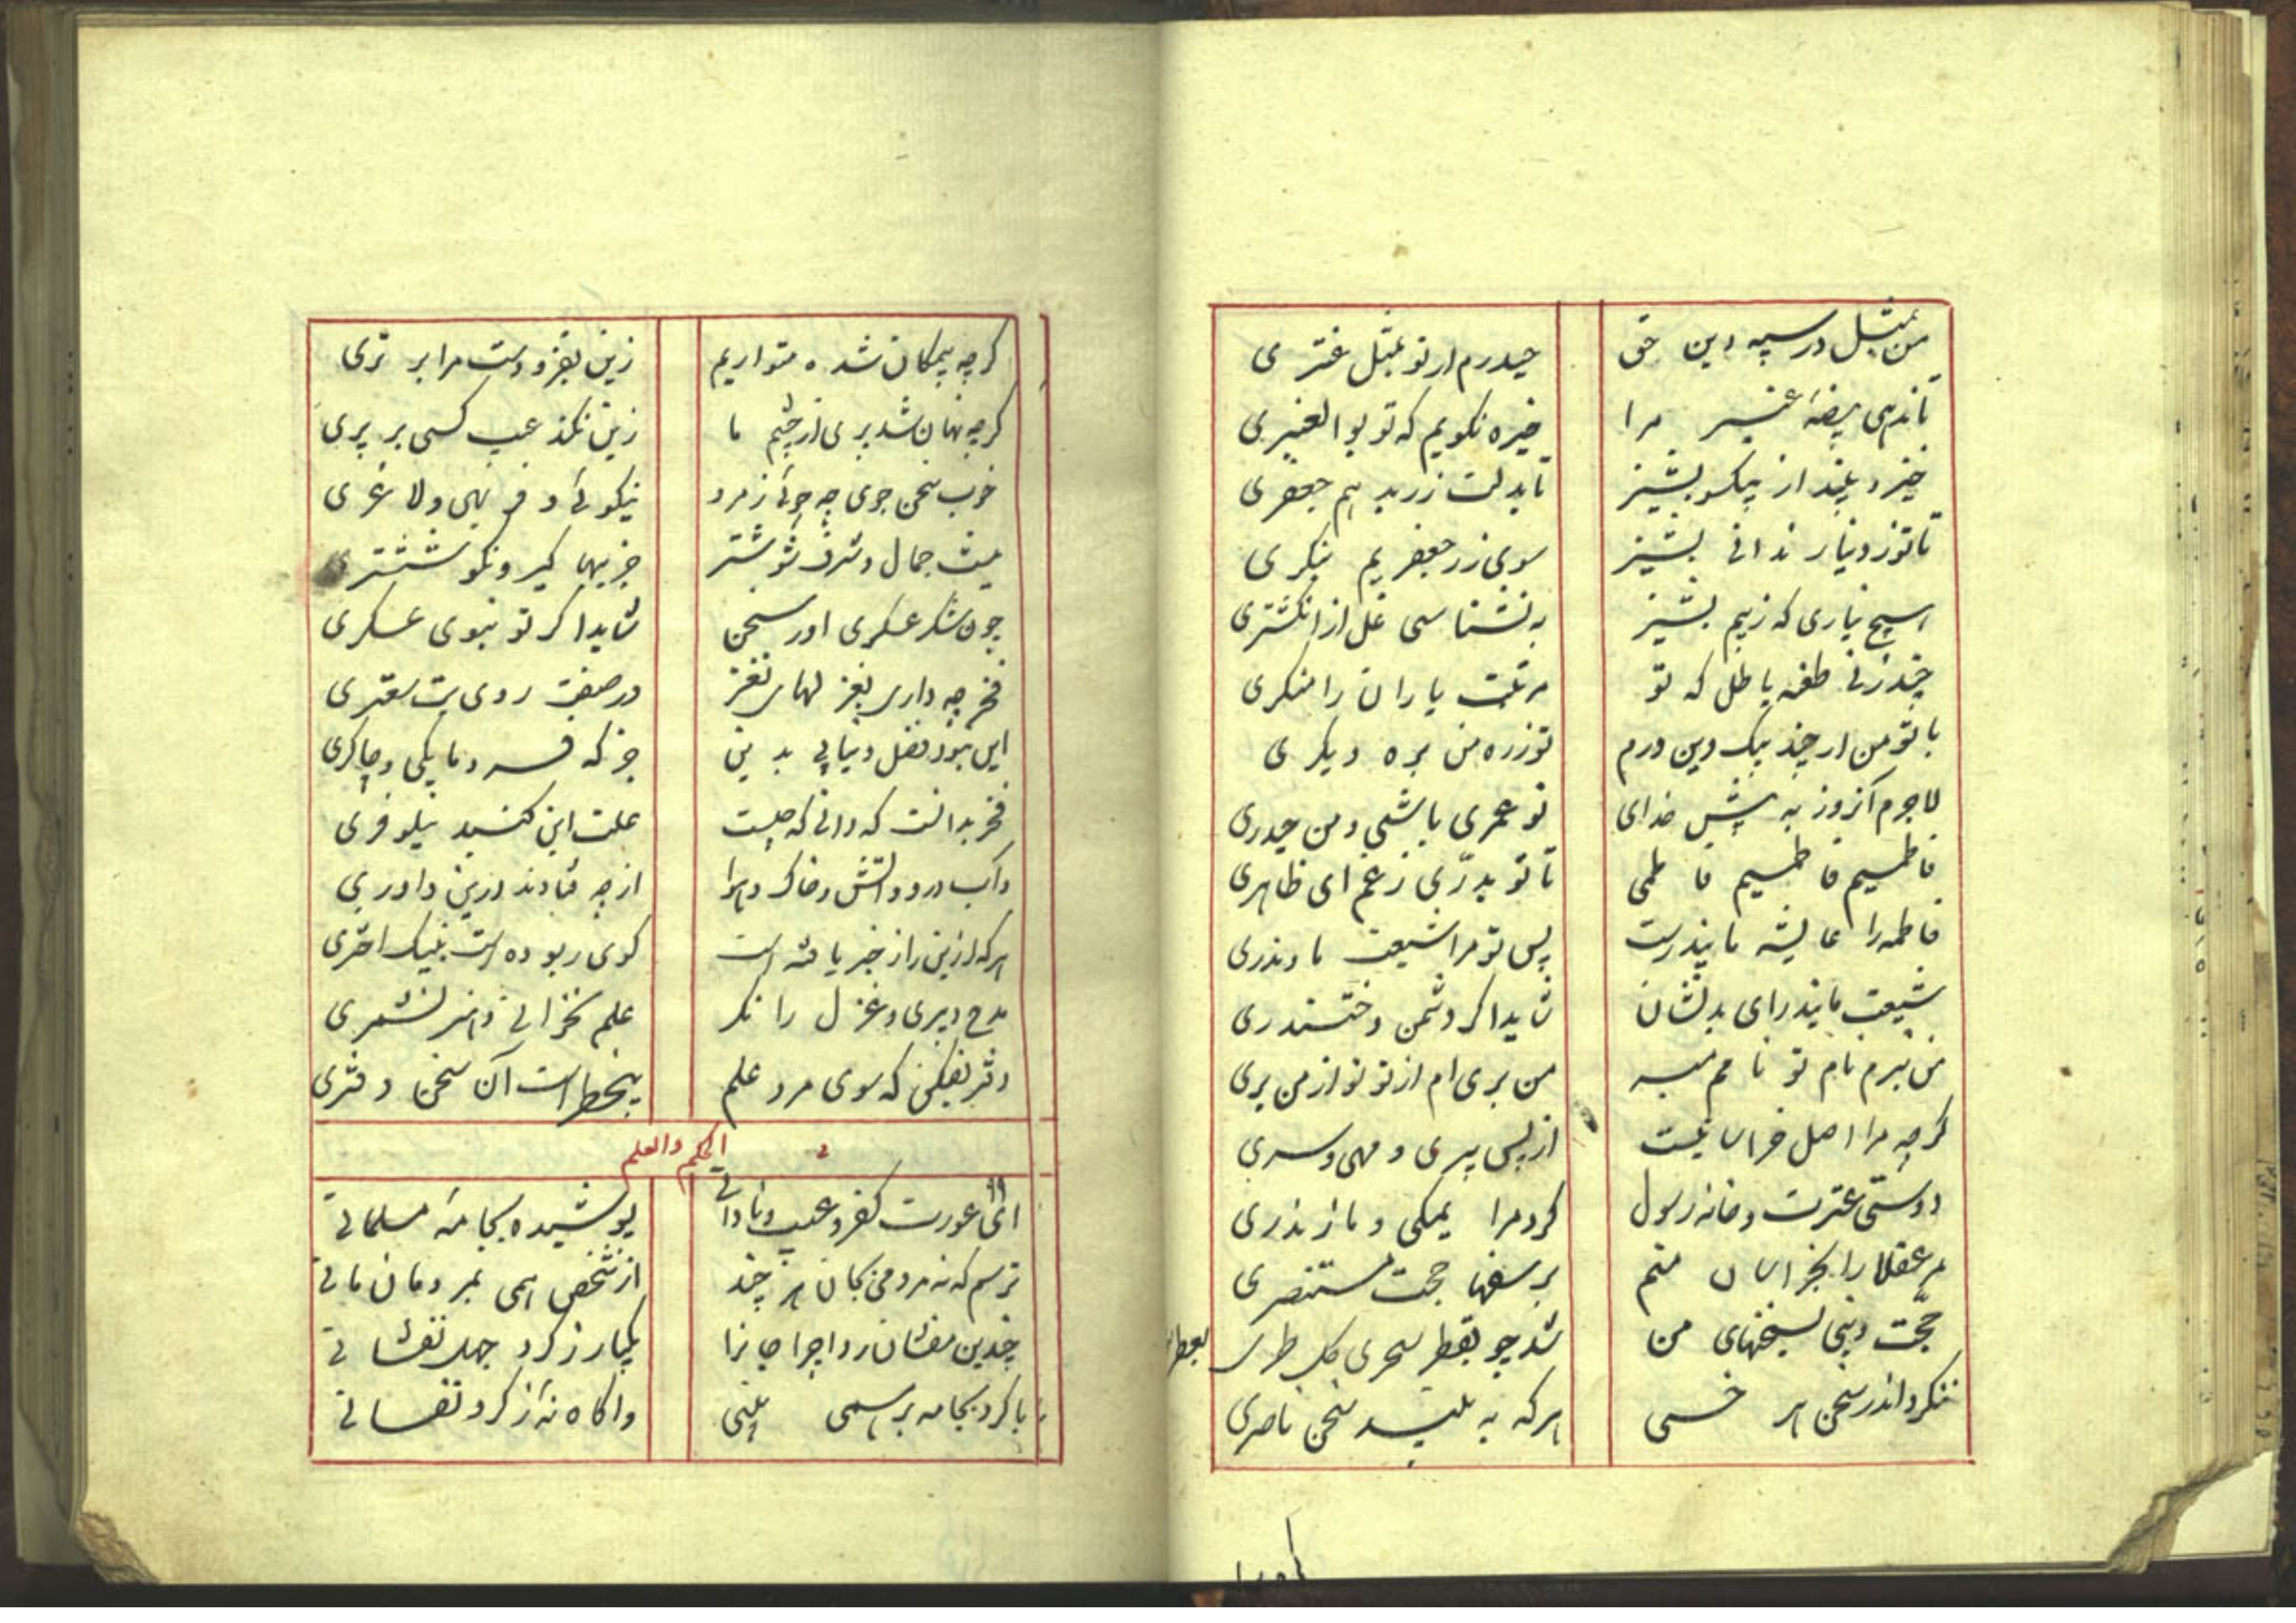 من بمثل در سپه دین حق حیدرم ار تو بمثل عنتری
تا ندهی بیضهٔ عنبر مرا خیره نگویم که تو بوالعنبری
خیز و بیند از پیکسو بشیز تا بدلت زر بدهم جعفری
تا تو ز دینار ندانی بشیز سوی زر جعفریم ننگری
هیچ نیاری که ز بیم بشیز به نشناسی غل از انگشتری
چند زنی طعنه باطل که تو مرتبت یاران را منکری
با تو من ار چند بیک دین درم تو ز ره من بره دیگری
لاجرم آنروز به پیش خدای تو عمری باشی و من حیدری
فاطمیم فاطمیم فاطمی تا تو بدرّی ز غم ای ظاهری
فاطمه را عایشه مایندرست پس تو مرا شیعت مادندری
شیعت مایندر ای بدنشان شاید اگر دشمن دختندری
من نبرم نام تو نامم مبر من بری ام از تو تو از من بری
گرچه مرا اصل خراسانیست از پس پیری و مهی و سری
دوستی عترت و خانه رسول کرد مرا یمکی و مازندری
مر عقلا را بخراسان منم بر سفها حجت مستنصری
حجّت دینی بسخنهای من شد چو بقطر سحری گل طری
ننگرد اندر سخن هر خسی هر که به بیند سخن ناصری
گرچه بیمکان شده متواریم زین بفزودست مرا برتری
گرچه نهان شد پری از چشم ما زین نکند عیب کسی بر پری
خوب سخن جوی چه جوئی ز مرد نیکوئی و فربهی و لاغری
نیست جمال و شرف شوشتر جز ببها گیر و نکو ششتری
چون شکر عسکری آور سخن شاید اگر تو نبوی عسکری
فخر چه داری بغزلهای نغز در صفت روی بت سعتری
این نبود فضل و نیابی بدین جز که فرومایگی و چاکری
فخر بدانست که دانی که چیست علت این گنبد نیلوفری
وآب درو و آتش و خاک و هوا از چه فتادند درین داوری
هر که ازین راز خبر یافته است گوی ربوده است بنیک اختری
مدح دبیری و غزل را نگر علم نخوانی و هنر نشمری
دفتر بفکن که سوی مرد علم بیخطر است آن سخن دفتری
الحکم والعلم
ای عورت کفر و عیب نادانی پوشیده بجامهٔ مسلمانی
ترسم که نه مردمی بجان هرچند از شخص همی بمردمان مانی
چندین مفشان ردا چرا جانرا یکبار ز گرد جهل نفشانی
با گرد بجامه بر همی بینی واگاه نه از گرد نفسانی